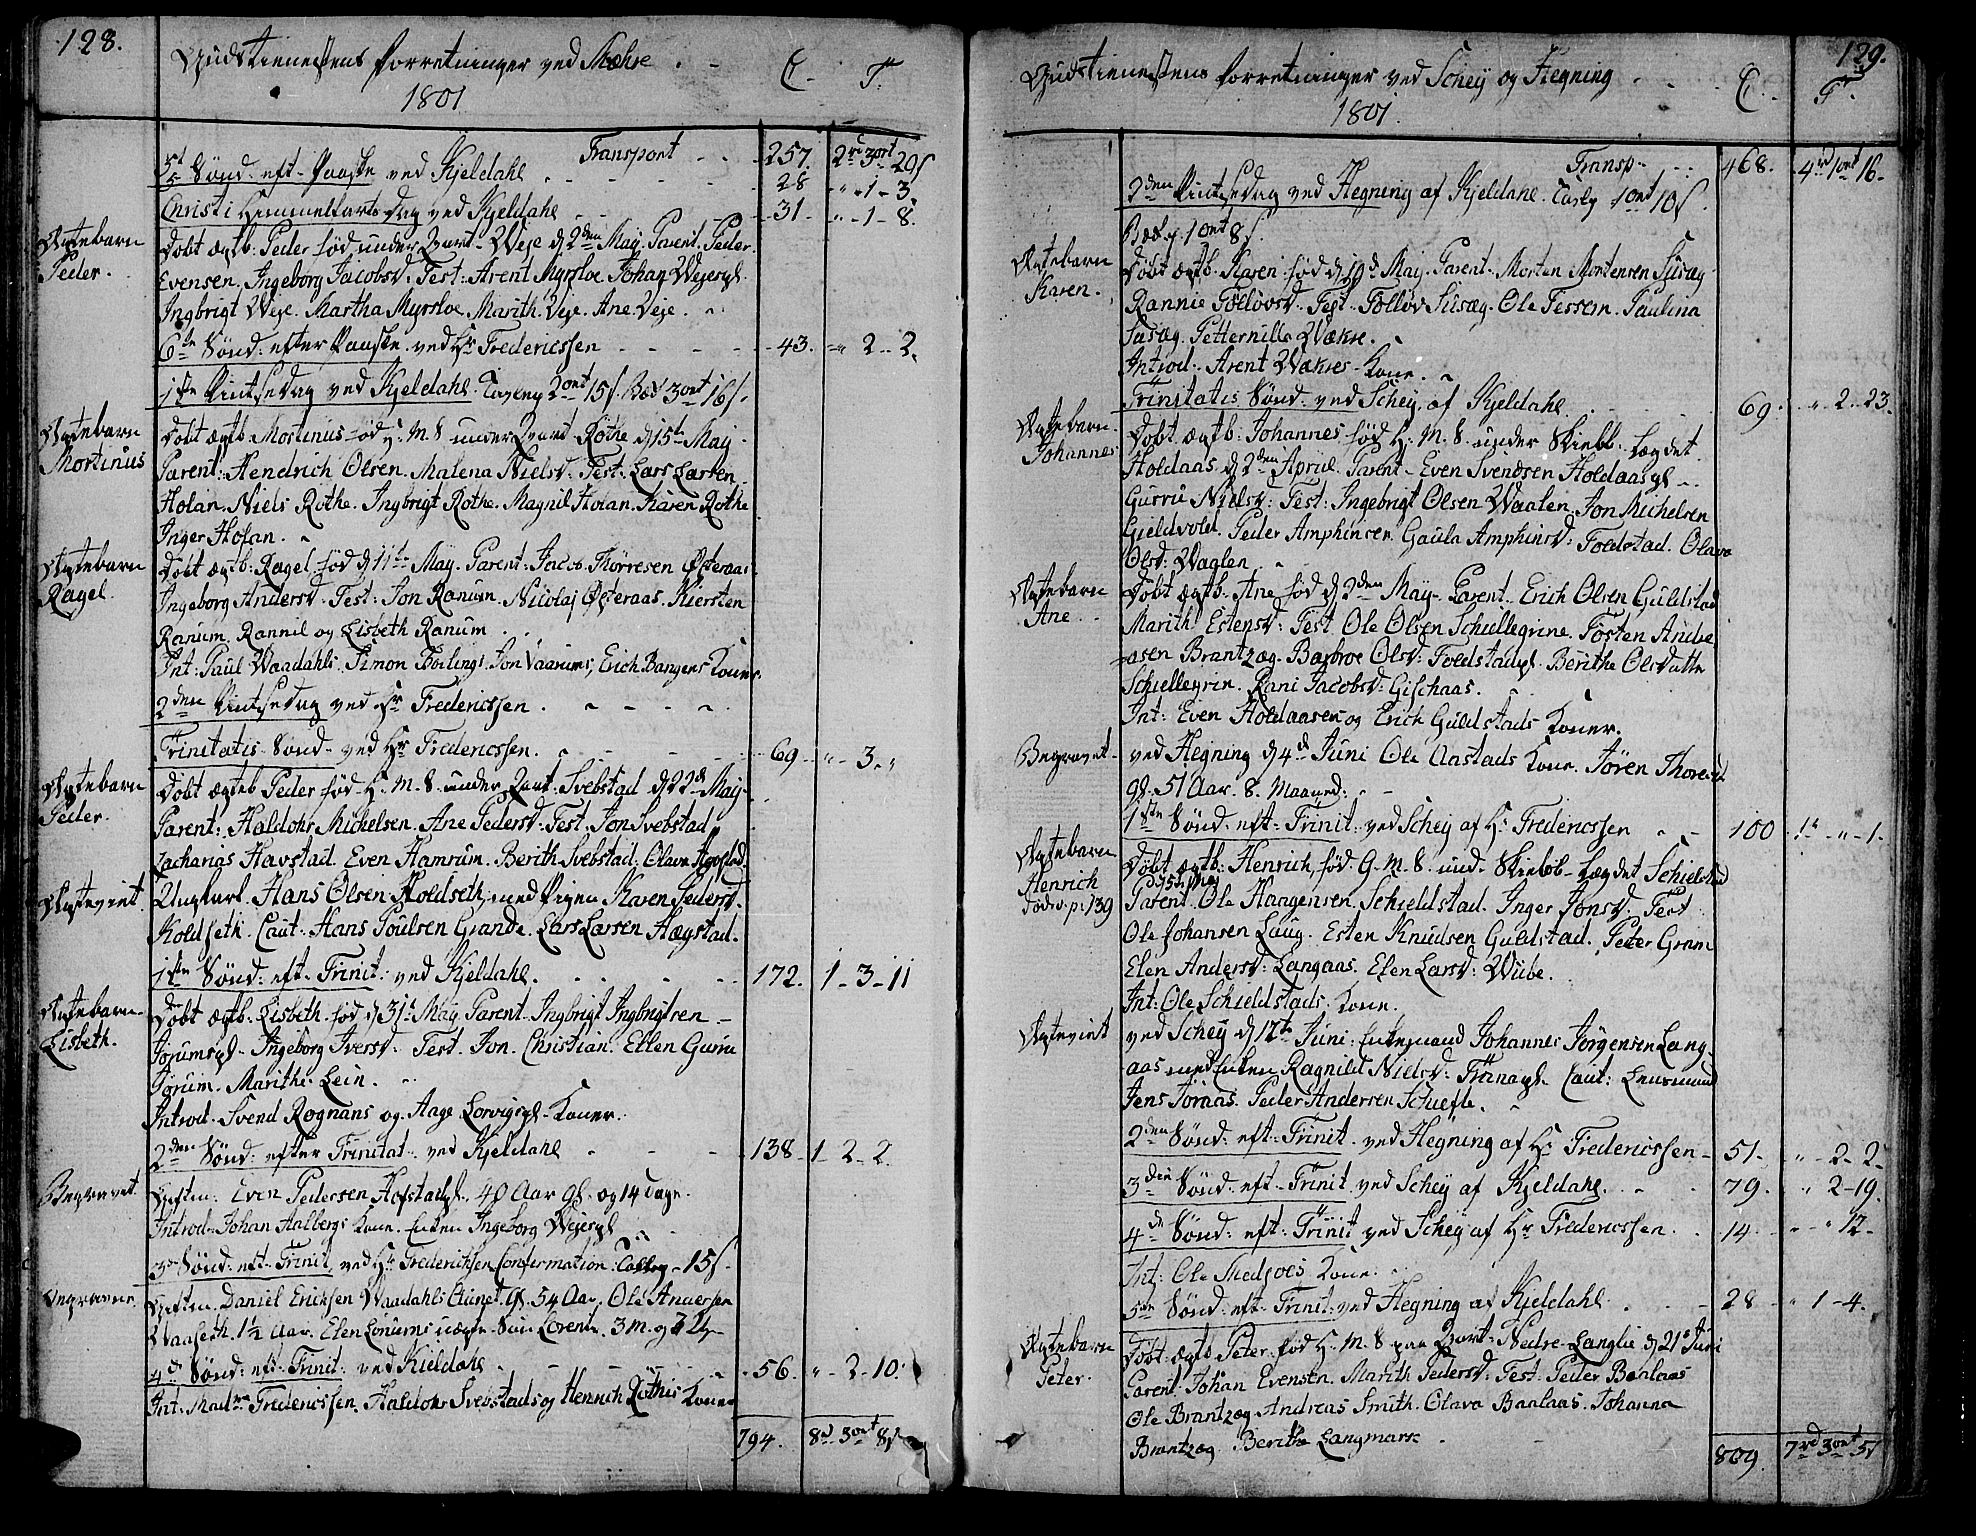 128.
Gudstienestens Forretninger ved Mæhre. C. T.
1801
Transport 257. 2rd 3ort 20s
5te Sønd. eft. Paaske ved Kjeldahl 28 " 1 - 3
Christi Himmelfarts Dag ved Kjeldahl 31. " - 1 - 8.
Ægtebarn
Peder.
Døbt ægtb. Peder fød under Qvart. Weje d 2den May. Parent. Peder
Evensen, Ingeborg Jacobsd. Test: Arent Myrsloe. Johan Wejesgl.
Ingbrigt Weje. Martha Myrsloe. Marith Veje. Ane Veje.
6te Sønd: efter Paaske ved Hr Fredericssen 43. " 2 - 2.
1ste Pintsedag ved Kjeldahl. 2ort 15s. 3ort 16s.
Ægtebarn
Mortinus
Døbt ægtb Mortinus fød H. M. S under Qvart Rothe d 15te May
Parent: Hendrich Olsen. Malena Nielsd: Test: Lars Larsen
Holan. Niels Rothe. Ingbrigt Rothe. Magnil Holan. Karen Rothe
Inger Holan.
Ægtebarn
Ragel.
Døbt ægtb. Ragel. fød d 11te May. Parent: Jacob Thørresen Østeraas
Ingeborg Andersd. Test: Jon Ranum. Nicolaj Østeraas. Kiersten
Ranum. Rannil og Lisbeth Ranum
Int: Paul Waadahls. Simon Jon Vaarums, Erich Bangens Koner
2den Pintsedag ved Hr Fredericssen.
Trinitatis Sønd. ved Hr Fredericssen. 69 " 3. "
Ægtebarn
Peder.
Døbt ægteb Peder fød H. M. S. under Qvart: Svebstad d 22d May
Parent: Haldohr Michelsen. Ane Pedersd. Test. Jon Svebstad
Zacharias Havstad. Even Hamrum. Berith Svebstad. Olava
Ægteviet.
Ungkarl Hans Olsen Holdseth, med Pigen Karen Pedersd.
Koldseth. Caut: Hans Poulsen Grande. Lars Larsen Hægstad.
1ste Sønd: eft. Trinit: ved Kjeldahl. 172. 1 - 3 - 11
Ægtebarn
Lisbeth.
Døbt ægtb. Lisbeth fød d 31te May Parent. Ingbrigt Ingbrigtsen
Jørumsgl. Ingeborg Iversd. Test. Jon. Christian. Ellen Guru
Jørum. Marithe Lein.
Introd. Svend Rognans og Aage Lorvigsgl. Koner.
2den Sønd: efter Trinitat. ved Kjeldahl 138 1 2 - 2.
Begravet.
Giften: Even Pedersen Hofstadgl. 40 Aar gl. og 14 dage.
Introd. Johan Aalbergs Kone. Enken Ingeborg Wejesgl
3de Sønd: eft. Trinit. ved Hr Frederichsen Confermation: 15s.
Begravne.
Giften Daniel Ericksen Waadahls gl. 54 Aar, Ole Andersen
1½ Aar. Elen uægte Søn Lorentz. 3 m. og
4de Sønd: eft. Trinit: ved Kieldahl 56. " 2 - 10.
Int: Madme Fredericssen. Haldohr Svebstads og Henrich Rothes Koner
794. 8rd 3ort 8s
129.
Gudstienestens Forretninger ved Schey og Hegning C. T.
1801.
Transp. 468. 4rd 1ort 16.
2den Pintsedag ved Hegning af Kjeldahl. 1ort 10s.
1ort 8s.
Ægtebarn
Karen.
Døbt ægtb. Karen fød d 19d May. Parent: Morten Mortensen Susæg
Rannie Følløvsd. Test. Følløv Susæg. Ole Tessem. Paulina
Susæg. Petternille Wækre.
Introd: Arent Wækres Kone.
Trinitatis Sønd. ved Schey af Kjeldahl. 69. " 2 - 23.
Ægtebarn
Johannes
Døbt ægtb: Johannes fød H. M. S. under Skiebb. Lægdet
Holdaas d 2den April. Parent. Even Svendsen Holdaasgl
Gurru Nielsd: Test: Ingebrigt Olsen Waalen, Jon Michelsen
Gieldvold. Peder Amphinsen. Gaula Amphinsd: Foldstad. Olava
Olsd: Waalen.
Ægtebarn
Ane.
Døbt ægtb. Ane fød d 2den May. Parent. Erich Olsen Guldstad
Marith Estensd. Test. Ole Olsen Schiellegrine. Tosten Ande
asen Brantzæg. Barbroe Olsd: Foldstadgl. Berithe Olsdatte
Schiellegrin. Rani Jacobsd: Gischaas.
Int: Even Holdaasen og Erich Guldstads Koner.
Begravet
ved Hegning d 4de Juni Ole Aastads Kone. Jøren Thoresd
gl. 51 Aar. 8. Maaned:
1ste Sønd. eft. Trinit. ved Schey af Hr Fredericssen 100 1s " 1.
Ægtebarn
Henrich
p. 139
Døbt ægtb: Henrich fød G. M. S. und. Skiebb. Lægdet Schieldstad
May
Parent. Ole Haagensen. Schieldstad. Inger Jonsd. Test
Ole Johansen Laug. Esten Knudsen Guldstad. Peter Gram
Elen Andersd: Langaas. Elen Larsd: Wiibe.
Int: Ole Schieldstads Kone.
Ægteviet
ved Schey d 12te Juni: Enkemand Johannes Jørgensen Lang
aas med Enken Ragnild Nielsd: Trønagl. Caut: Lensmand
Jens Jøraas. Peder Andersen Schiefte.
2den Sønd: eft: Trinit. ved Hegning af Hr Fredericssen 51. " 2 - 2
3die Sønd: eft: Trinit. ved Schey af Kjeldahl. 79 " 2 - 19.
4de Sønd: eft: Trinit ved Schey af Hr Fredericssen. 14 " " 12.
Int: Ole Medjoes Kone.
5te Sønd: eft. Trinit: ved Hegning af Kjeldahl 28 " 1 - 4.
Ægtebarn
Peter.
Døbt ægtb Peter fød H. M. S paa Qvart: Nedre Langlie d 21de Juni
Parent. Johan Evensen. Marith Pedersd: Test: Peder Banlaas
Ole Brantzæg Andreas Smith. Olava Banlaas. Johanna
Brantzæg. Berithe Langmarse
809. 7rd 3ort 5s